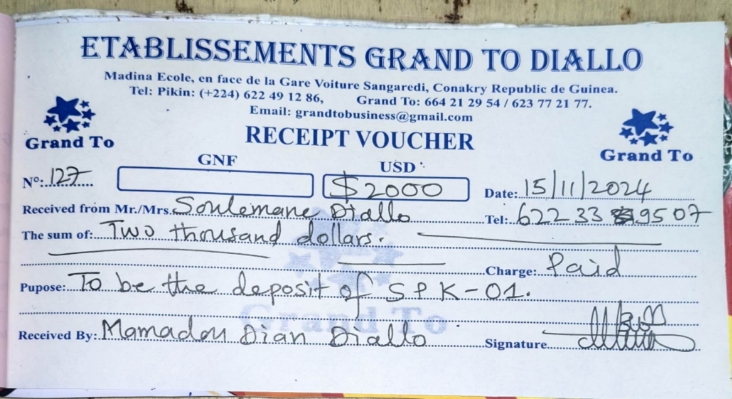 ETABLISSEMENTS GRAND TO DIALLO
Madina Ecole, en face de la Gare Voiture Sangaredi, Conakry Republic de Guinea.
Tel: Pikin: (+224) 622 49 12 86, Grand To: 664 21 29 54 / 623 77 21 77.
Email: grandtobusiness@gmail.com
Grand To
RECEIPT VOUCHER
Grand To
GNF USD
Nº: 127 $2000 Date: 15/11/2024
Received from Mr./Mrs. Soulemane Diallo Tel: 622 33 95 07
The sum of: Two thousand dollars.
Charge: Paid
Pupose: To be the deposit of SPK-01.
Grand To
Received By: Mamadou Dian Diallo Signature